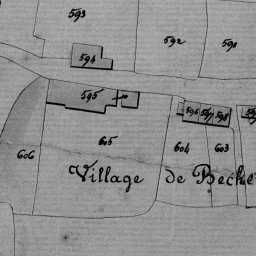 593
592
591
594
595
596 597 598
605
604
603
606
Village de Beche